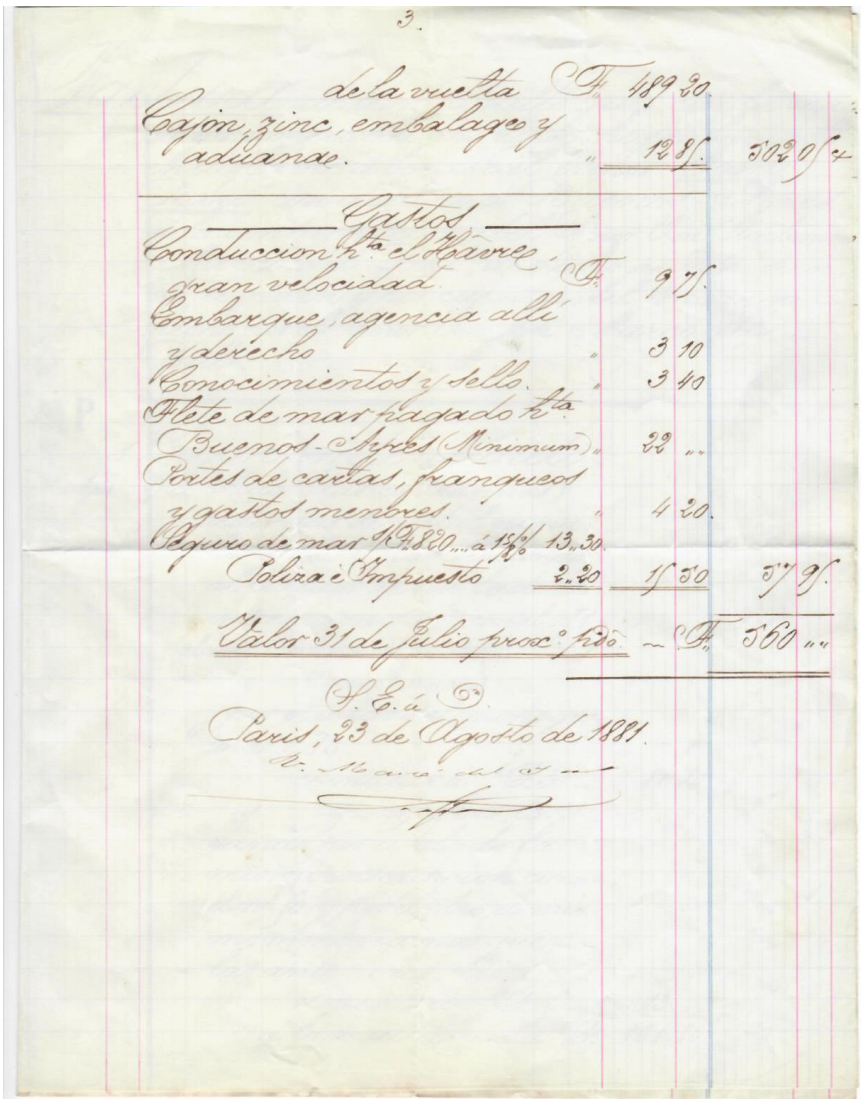 3.
de la vuelta F. 489 20.
Cajon, zinc, embalages y
aduande. " 12 85. 502 05
Gastos
Conduccion hta. el Hâvre,
gran velocidad. F. 9 75.
Embarque, agencia alli
y derecho " 3 10
Conocimientos y sello. " 3 40
Flete de mar pagado hta.
Buenos-Ayres (Minimum) " 22 ""
Portes de cartas, franqueos
y gastos menores. " 4 20.
Seguro de mar s/ F. 820,,.. á % 13,,30.
Poliza é Impuesto 2,,20 15 50 57 95.
Valor 31 de Julio proxº pdo. - F. 560 ""
S. E. ú O.
Paris, 23 de Agosto de 1881.